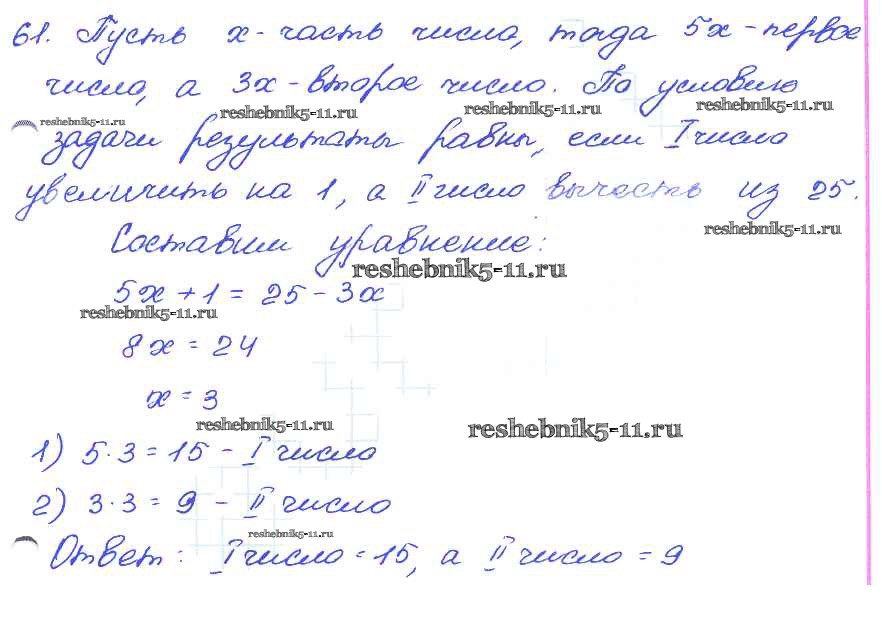 61. Пусть х - часть числа, тогда 5х - первое
число, а 3х - второе число. По условию
reshebnik5-11.ru reshebnik5-11.ru reshebnik5-11.ru
reshebnik5-11.ru
задачи результаты равны, если I число
увеличить на 1, а II число вычесть из 25.
reshebnik5-11.ru
Составим уравнение:
reshebnik5-11.ru
5х + 1 = 25 - 3х
reshebnik5-11.ru
8х = 24
х = 3
reshebnik5-11.ru reshebnik5-11.ru
1) 5·3 = 15 - I число
2) 3·3 = 9 - II число
reshebnik5-11.ru
Ответ: I число = 15, а II число = 9